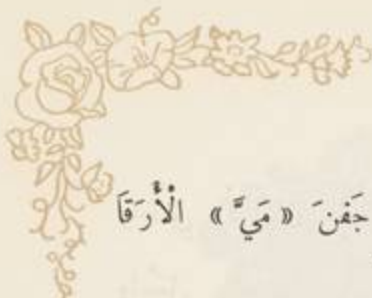 جَفنَ « مَيَّ » الْأَرَقَا